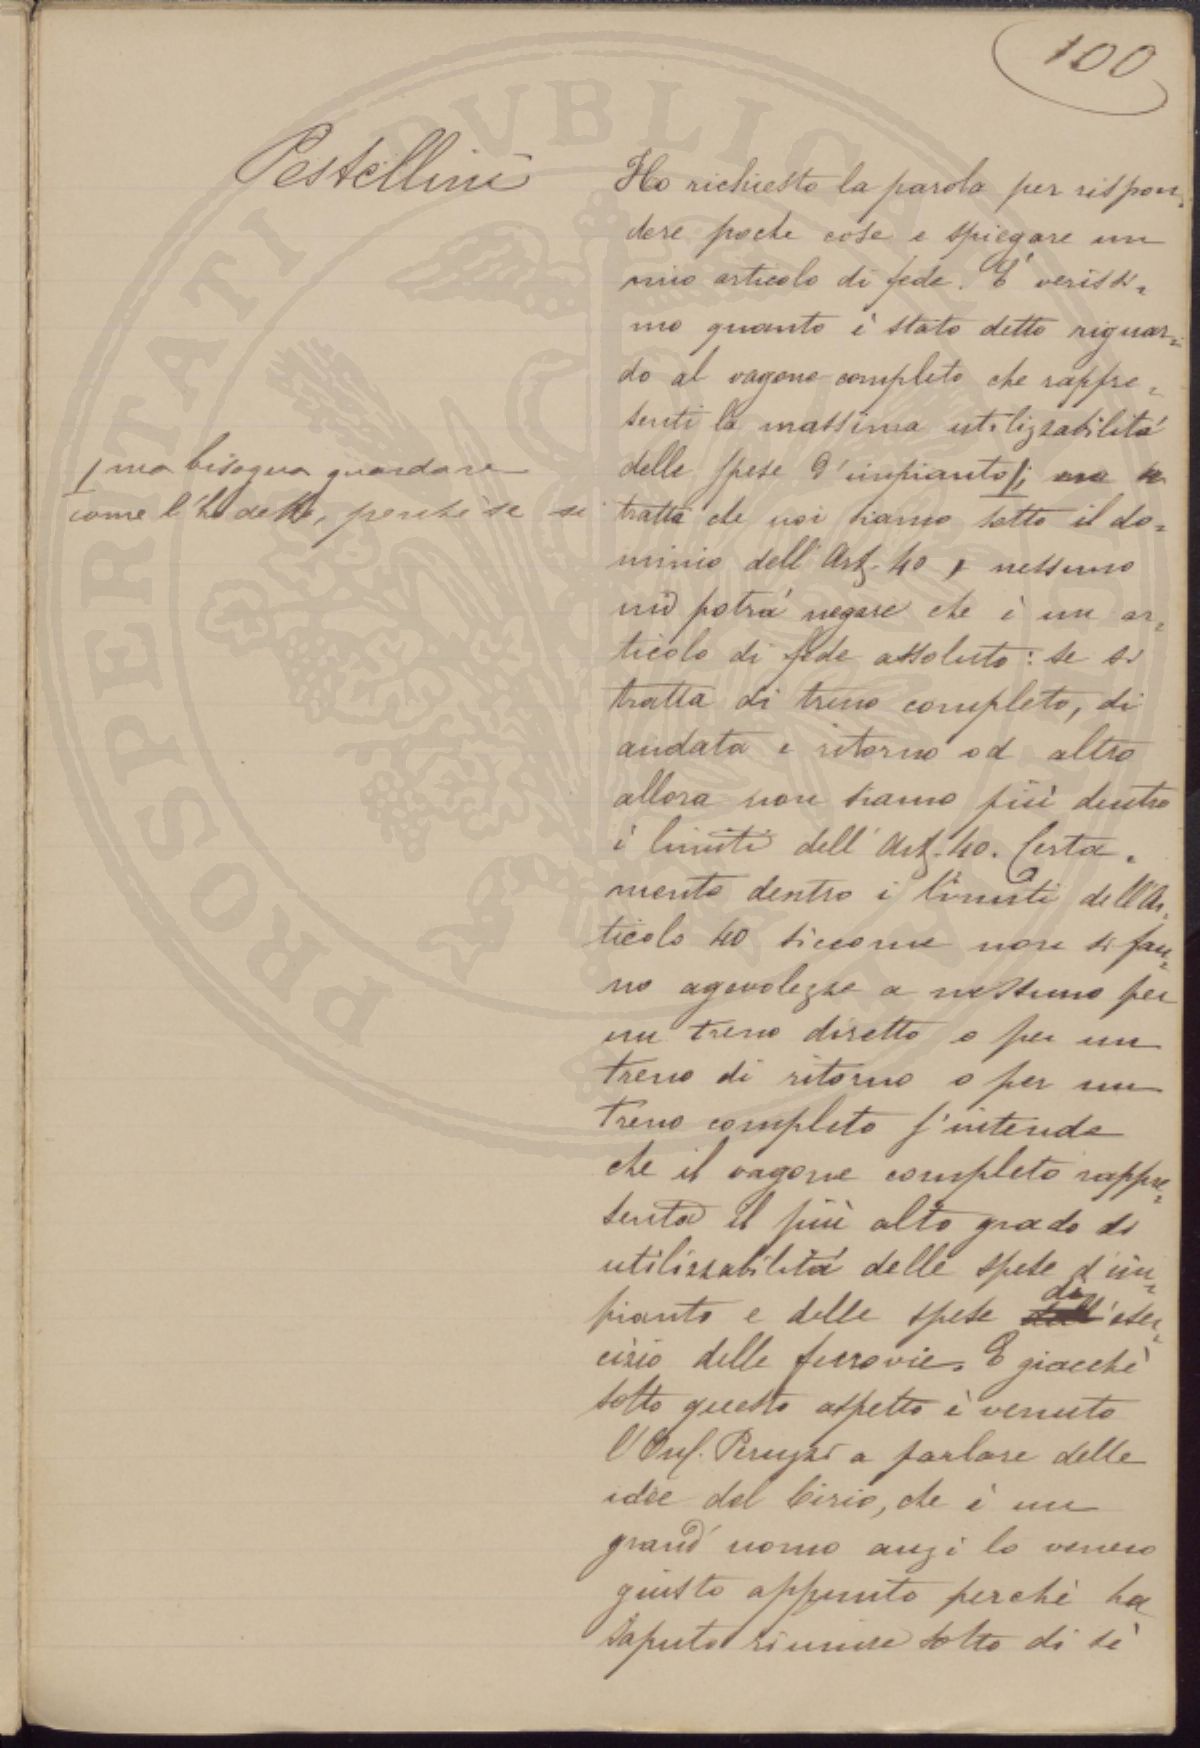 100
Pestellini
Ho richiesto la parola per rispon-
dere poche cose e spiegare un
mio articolo di fede. E' veriss-
mo quanto è stato detto riguar-
do al vagone completo che rappre-
senti la massima utilizzabilità
delle spese d'impianto; ma se
ma bisogna guardare
come l'ho detto, perchè se si
tratta che noi siamo sotto il do-
minio dell'Art. 40, nessuno
mi potrà negare che è un ar-
ticolo di fede assoluto: se si
tratta di treno completo, di
andata e ritorno od altro
allora non siamo più dentro
i limiti dell'Art. 40. Certa-
mente dentro i limiti dell'Ar-
ticolo 40 siccome non si fan-
no agevolezze a nessuno per
un treno diretto o per un
treno di ritorno o per un
treno completo s'intende
che il vagone completo rappre-
senta il più alto grado di
utilizzabilità delle spese d'im-
pianto e delle spese di eser-
cizio delle ferrovie. E giacchè
sotto questo aspetto è venuto
l'Onf. Peruzzi a parlare delle
idee del Cirio, che è un
grand'uomo anzi lo venero
giusto appunto perchè ha
saputo riunire sotto di sè
PROSPERITATI PVBLICAE